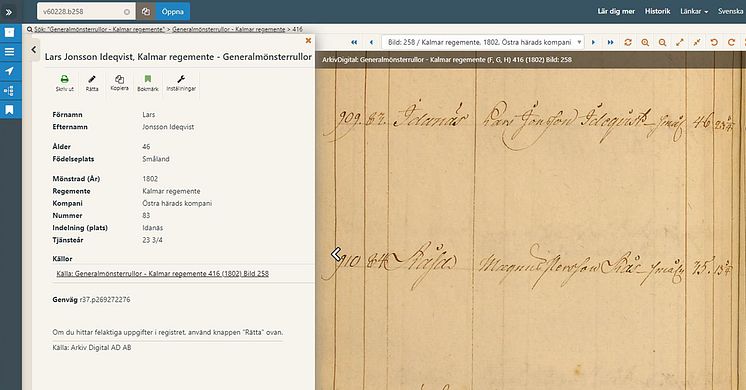 v60228.b258
Öppna
Lär dig mer
Historik
Länkar
Svenska
Sök: "Generalmönsterrullor - Kalmar regemente" > Generalmönsterrullor - Kalmar regemente > 416
Lars Jonsson Ideqvist, Kalmar regemente - Generalmönsterrullor
Skriv ut
Rätta
Kopiera
Bokmärk
Inställningar
Förnamn Lars
Efternamn Jonsson Ideqvist
Ålder 46
Födelseplats Småland
Mönstrad (År) 1802
Regemente Kalmar regemente
Kompani Östra härads kompani
Nummer 83
Indelning (plats) Idanäs
Tjänsteår 23 3/4
Källor
Källa: Generalmönsterrullor - Kalmar regemente 416 (1802) Bild 258
Genväg r37.p269272276
Om du hittar felaktiga uppgifter i registret, använd knappen "Rätta" ovan.
Källa: Arkiv Digital AD AB
Bild: 258 / Kalmar regemente, 1802, Östra härads kompani
ArkivDigital: Generalmönsterrullor - Kalmar regemente (F, G, H) 416 (1802) Bild: 258
909. 83. Idanäs Lars Jonsson Ideqvist Smål 46
910 84 Magnus Småln 35.